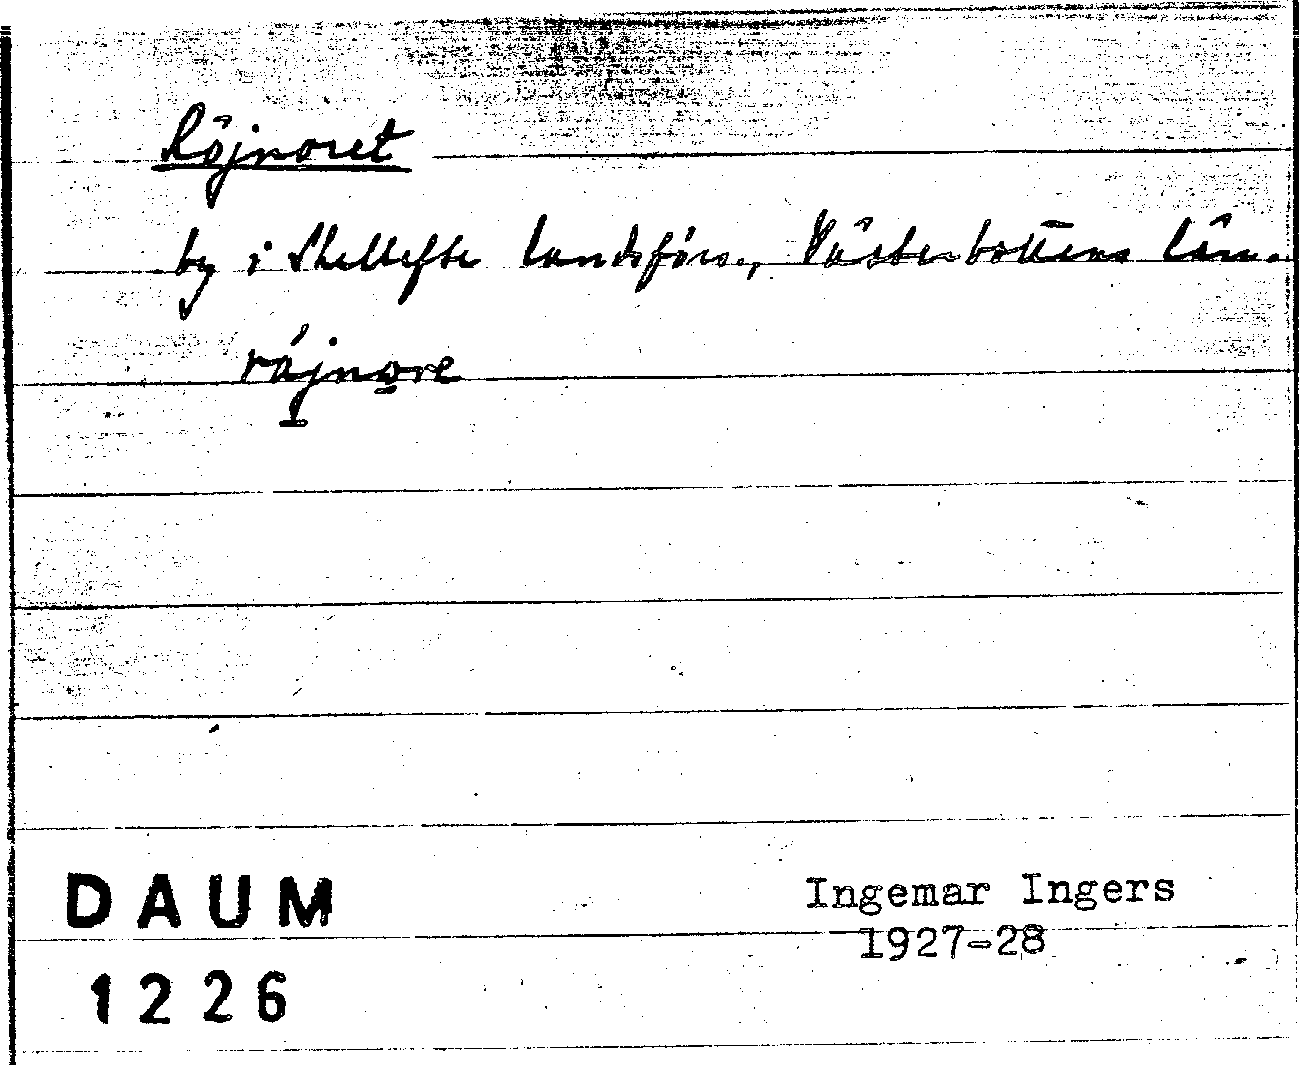 Röjnoret
by i Skellefte landsförs., Västerbottens län.
råjnore
DAUM
1226
Ingemar Ingers
1927-28